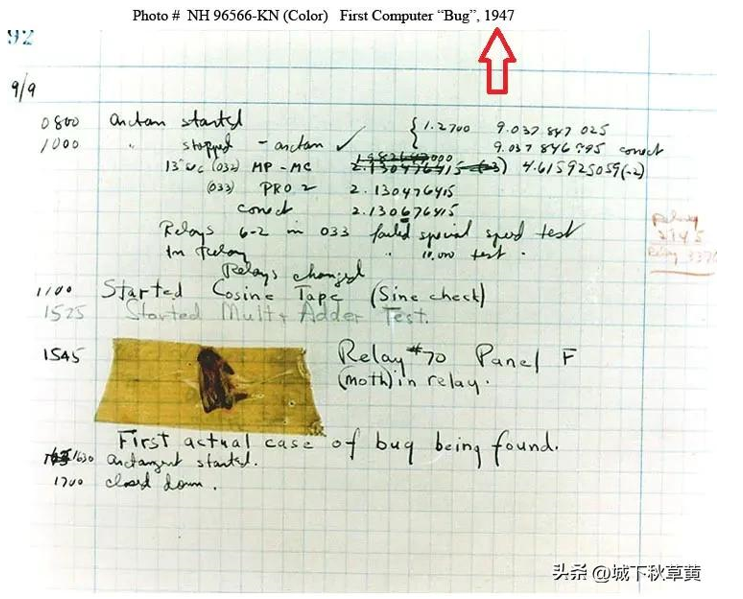 Photo # NH 96566-KN (Color) First Computer “Bug”, 1947
92
9/9
0800 Arctan started { 1.2700 9.037 847 025
1000 " stopped - arctan ✓ 9.037 846 995 conect
13"uc (032) MP - MC 2.130476415 4.615925059(-2)
(033) PRO 2 2.130476415
conect 2.130676415
Relays 6-2 in 033 failed special speed test
In Relay " 10.000 test.
Relay
2145
Relay 3370
Relays changed
1100 Started Cosine Tape (Sine check)
1525 Started Mult+ Adder Test.
1545 Relay #70 Panel F
(moth) in relay.
First actual case of bug being found.
1630 arctangent started.
1700 closed down.
头条 @城下秋草黄